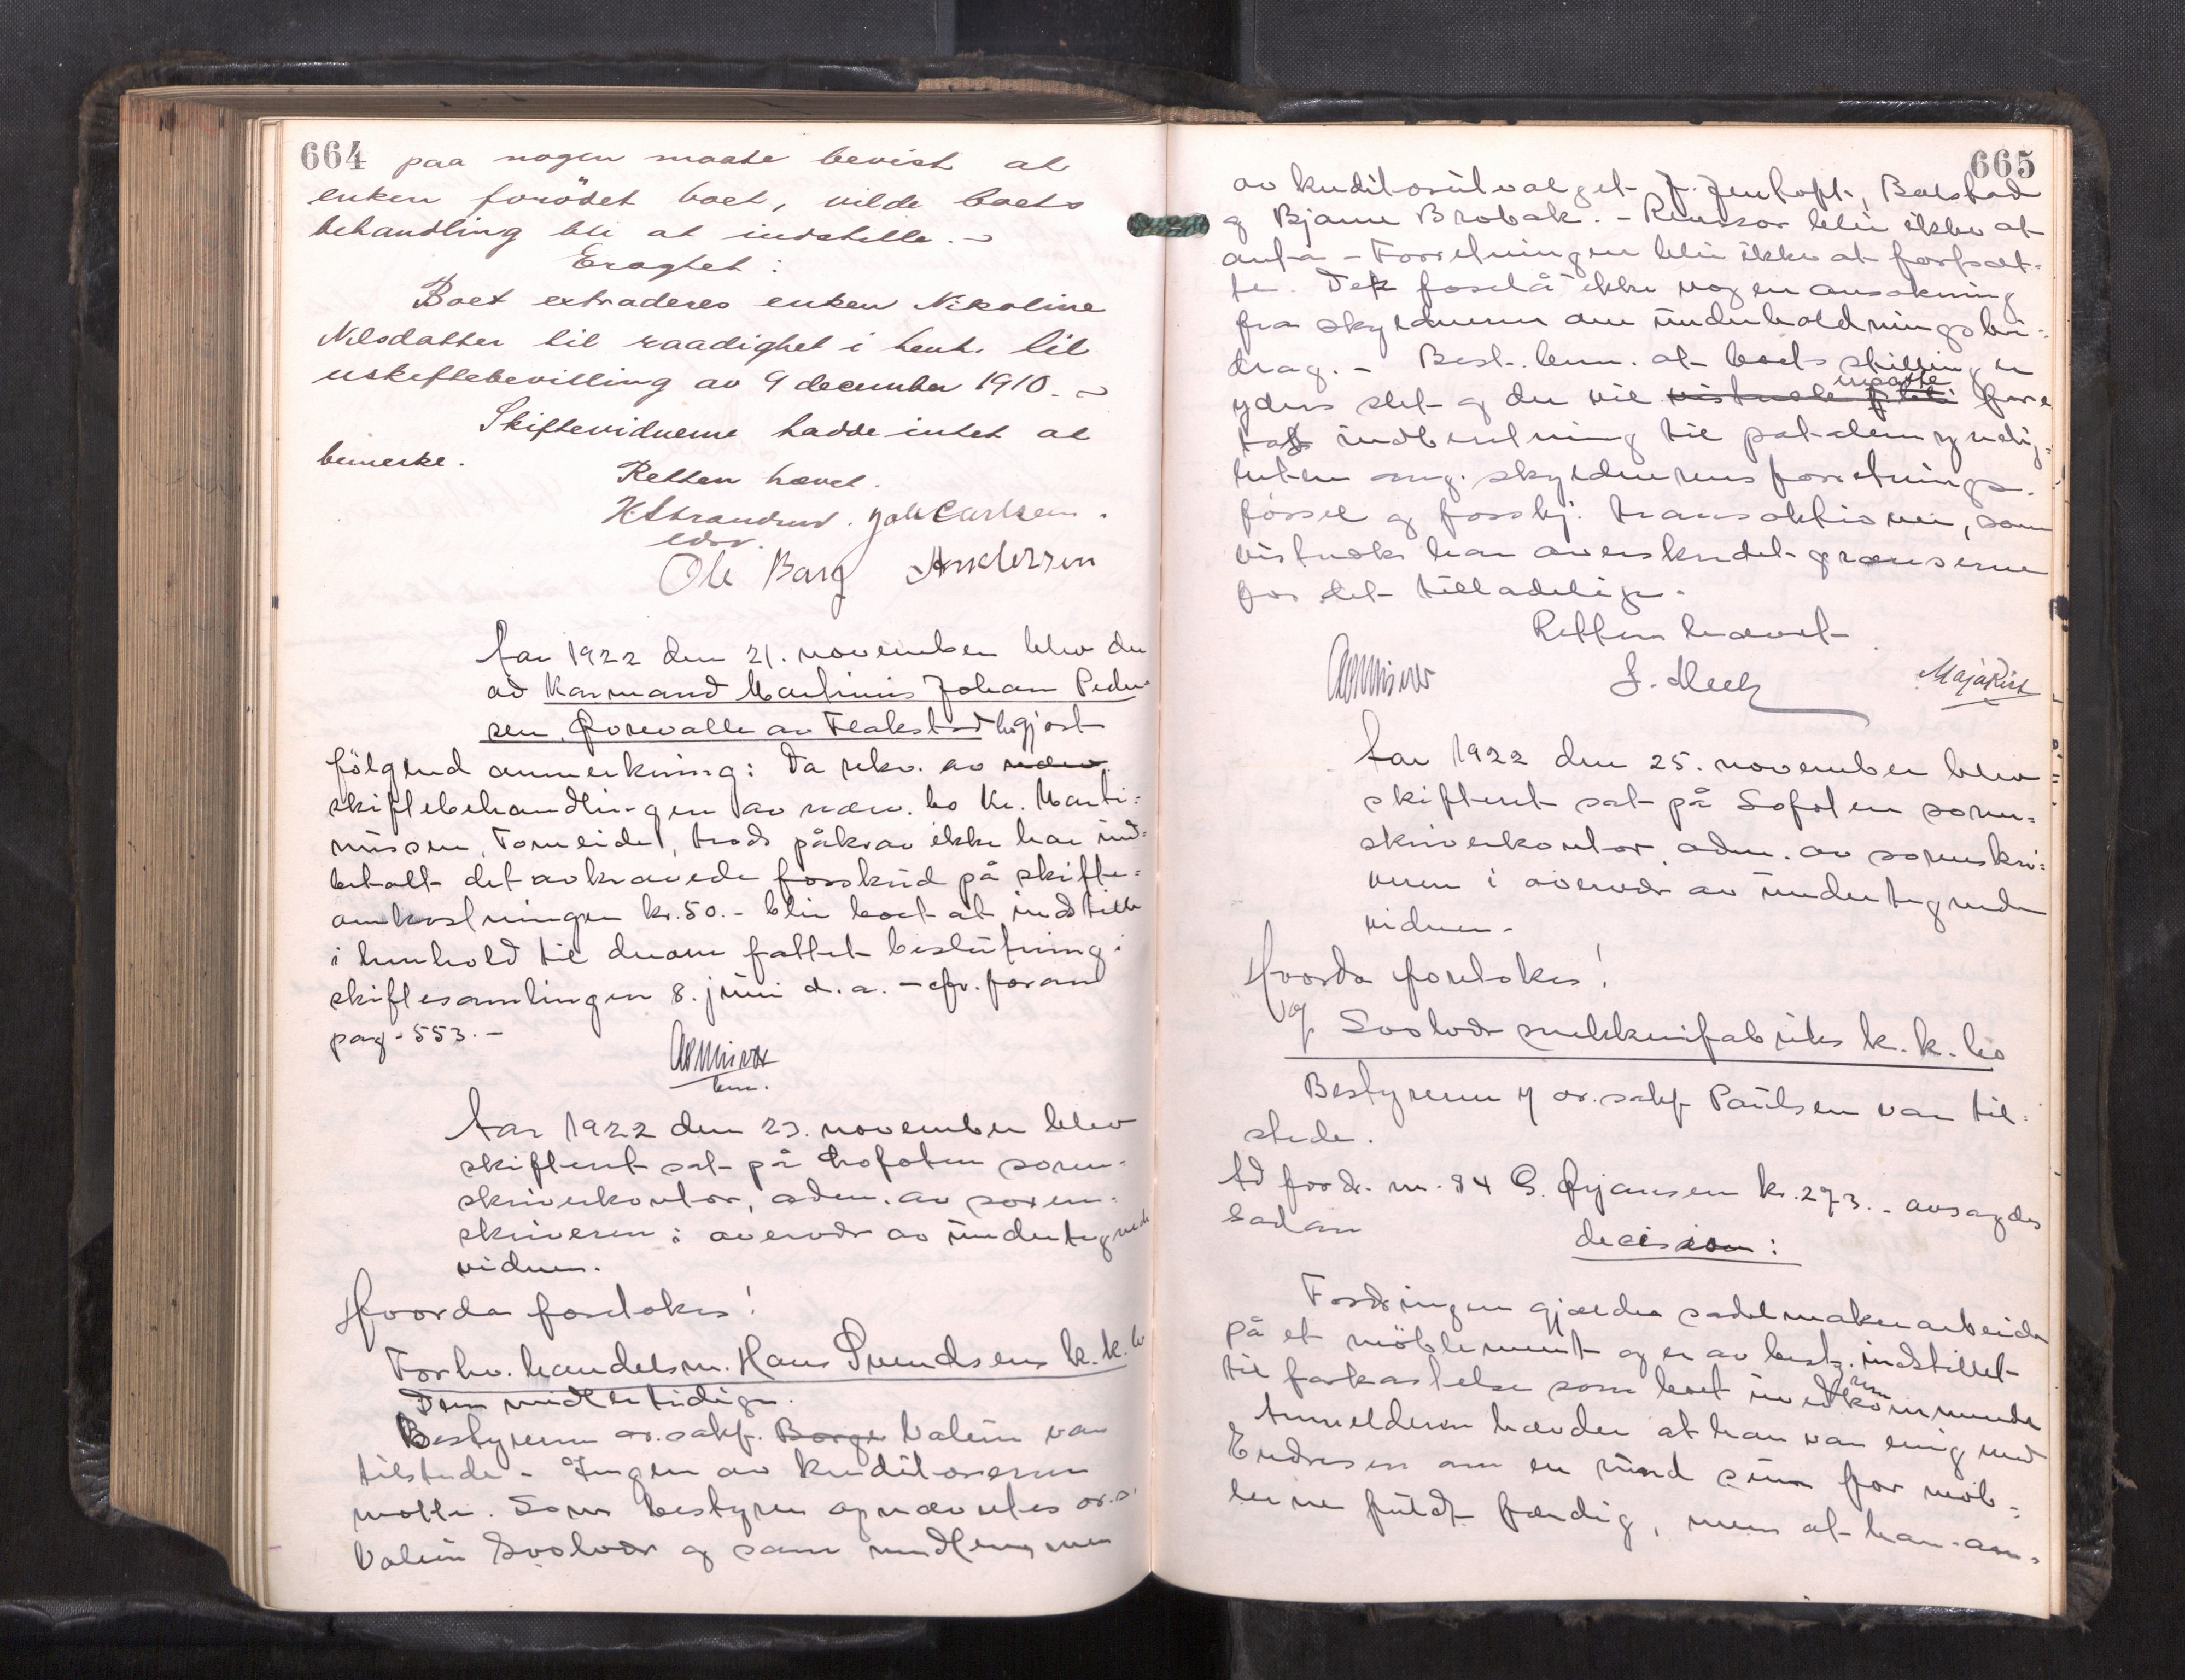 664
paa nogen maate bevist at
enken forödet boet, vilde boets
behandling bli at indstille. -
Eragtet:
Boet extraderes enken Nikoline
Nilsdatter til raadighet i henh. til
uskiftebevilling av 9 december 1910. -
Skiftevidnerne hadde intet at
bemerke.
Retten hævet.
H Strandrud. Joh Carlsen.
edsv.
Ole Barg Andersen
Aar 1922 den 21. november blev der
ad Karmand Martinus Johan Peder-
sen, av Flakstad bo gjort
fölgend anmerkning: Da rekv. av
skiftebehandlingen av nævn. bo Kr. Marti=
nussen, Torneidet, trods påkrav ikke har ind=
betalt det avkrævede forskud på skifte=
omkostningen kr. 50.- blir boet at indstille
i henhold til derom fattet beslutning i
skiftesamlingen 8. juni d.a. - cfr. foran
pag. 553. -
Aar 1922 den 23. november blev
skifteret sat på Lofoten soren=
skriverkontor, adm. av soren=
skriveren i overvær av undertegnede
vidner.
Hvorda foretokes!
Forhv. handelsm. Hans Svendsens k.k. bo
Den midlertidige
Bestyreren or. sakf. Borge Valen var
tilstede - Ingen av kreditorerne
møtte. Som bestyrer opnævntes or.s.
Valen Svolvær og som medlemmer
665
av kreditorutvalget J. Jentoft, Balstad
og Bjarne Brobak. - Revisor blir ikke at
anta - Forretningen blir ikke at fortsæt=
te. Det forelå ikke nogen ansøkning
fra skyldneren om underholdningsbi=
drag. - Best. bem. at boets stilling er
yders slet og der vil fore
ta indberetning til påtalemyndig=
heten ang. skyldnerens forretnings-
førsel og forskj. transaktioner, som
vistnok har overskredet grænserne
for det tilladelige.
Retten hævet.
Maja Rist
Aar 1922 den 25. november blev
skifteret sat på Lofoten soren=
skriverkontor, adm. av sorenskri=
veren i overvær av undertegnede
vidner.
Hvorda foretokes!
Svolvær snekkerifabriks k.k. bo
Bestyreren or. sakf Paulsen var til=
stede.
Ad fordr. nr. 84 G. Ørjansen kr. 273.- avsagdes
sådan
decision:
Fordringen gjælder sadelmakerarbeide
på et möblement og er av best. indstillet
til forkastelse som boet uvedkommende
Anmelderen hævder at han var enig med
Endresen om en rund sum for möb=
lerne fuldt færdig, men at han an-